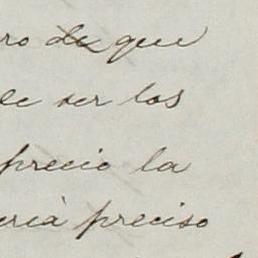 ro de que
de ser los
precio la
eria preciso